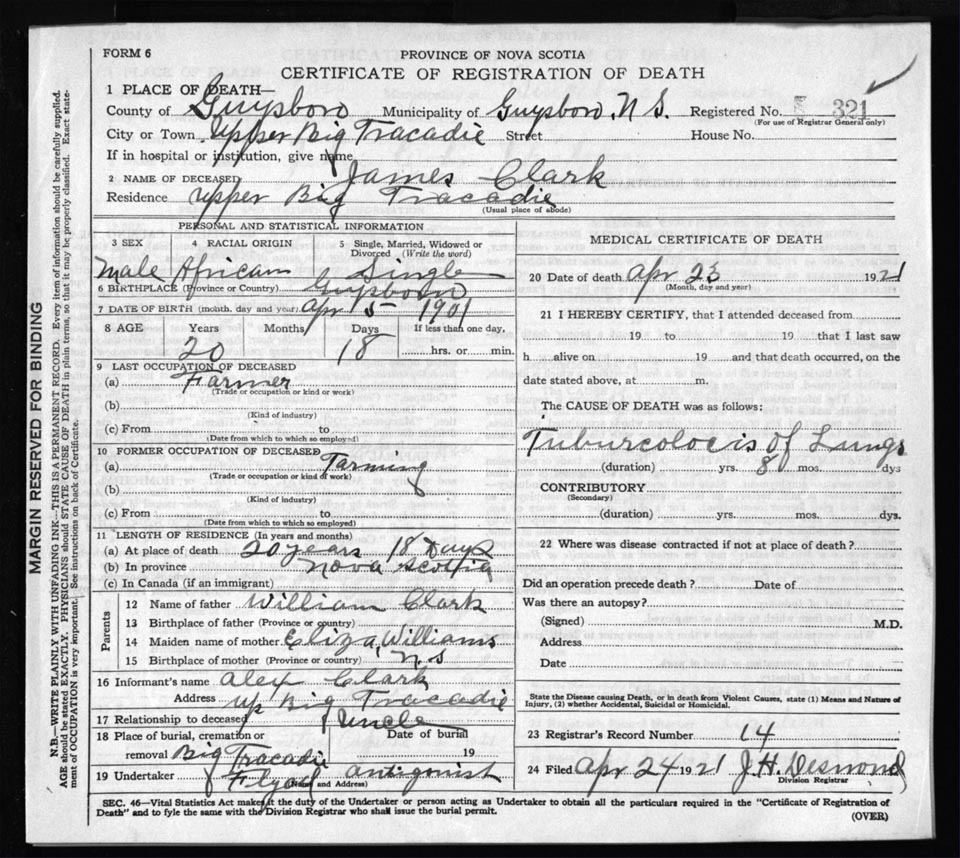 FORM 6
PROVINCE OF NOVA SCOTIA
CERTIFICATE OF REGISTRATION OF DEATH
1 PLACE OF DEATH—
County of Guysboro Municipality of Guysboro, N S. Registered No. 321
(For use of Registrar General only)
City or Town Upper Big Tracadie Street House No.
If in hospital or institution, give name
2 NAME OF DECEASED James Clark
Residence Upper Big Tracadie
(Usual place of abode)
PERSONAL AND STATISTICAL INFORMATION
3 SEX 4 RACIAL ORIGIN 5 Single, Married, Widowed or Divorced (Write the word)
Male African Single
6 BIRTHPLACE (Province or Country) Guysboro
7 DATE OF BIRTH (month, day and year) Apr 5 1901
8 AGE Years Months Days If less than one day,
20 18 hrs. or min.
9 LAST OCCUPATION OF DECEASED
(a) Farmer
(Trade or occupation or kind or work)
(b)
(Kind of industry)
(c) From to
(Date from which to which so employed)
10 FORMER OCCUPATION OF DECEASED
(a) Farming
(Trade or occupation or kind of work)
(b)
(Kind of industry)
(c) From to
(Date from which to which so employed)
11 LENGTH OF RESIDENCE (In years and months)
(a) At place of death 20 years 18 Days
(b) In province Nova Scottia
(c) In Canada (if an immigrant)
Parents
12 Name of father William Clark
13 Birthplace of father (Province or country)
14 Maiden name of mother Eliza, Williams
15 Birthplace of mother (Province or country) N.S
16 Informant's name Alex Clark
Address Up Big Tracadie
17 Relationship to deceased Uncle
18 Place of burial, cremation or removal Date of burial
Big Tracadie 19
19 Undertaker antigonist
(Name and Address)
MEDICAL CERTIFICATE OF DEATH
20 Date of death Apr 23 1921
(Month, day and year)
21 I HEREBY CERTIFY, that I attended deceased from
19 to 19 that I last saw
h alive on 19 and that death occurred, on the
date stated above, at m.
The CAUSE OF DEATH was as follows:
Tuburcolocis of Lungs
(duration) yrs. 8 mos. dys
CONTRIBUTORY
(Secondary)
(duration) yrs. mos. dys.
22 Where was disease contracted if not at place of death?
Did an operation precede death? Date of
Was there an autopsy?
(Signed) M.D.
Address
Date
State the Disease causing Death, or in death from Violent Causes, state (1) Means and Nature of
Injury, (2) whether Accidental, Suicidal or Homicidal.
23 Registrar's Record Number 14
24 Filed Apr 24 1921 J. H. Desmond
Division Registrar
SEC. 46—Vital Statistics Act makes it the duty of the Undertaker or person acting as Undertaker to obtain all the particulars required in the "Certificate of Registration of
Death" and to fyle the same with the Division Registrar who shall issue the burial permit.
(OVER)
MARGIN RESERVED FOR BINDING
N.B.—WRITE PLAINLY WITH UNFADING INK—THIS IS A PERMANENT RECORD. Every item of information should be carefully supplied.
AGE should be stated EXACTLY. PHYSICIANS should STATE CAUSE OF DEATH in plain terms, so that it may be properly classified. Exact state-
ment of OCCUPATION is very important. See instructions on back of Certificate.